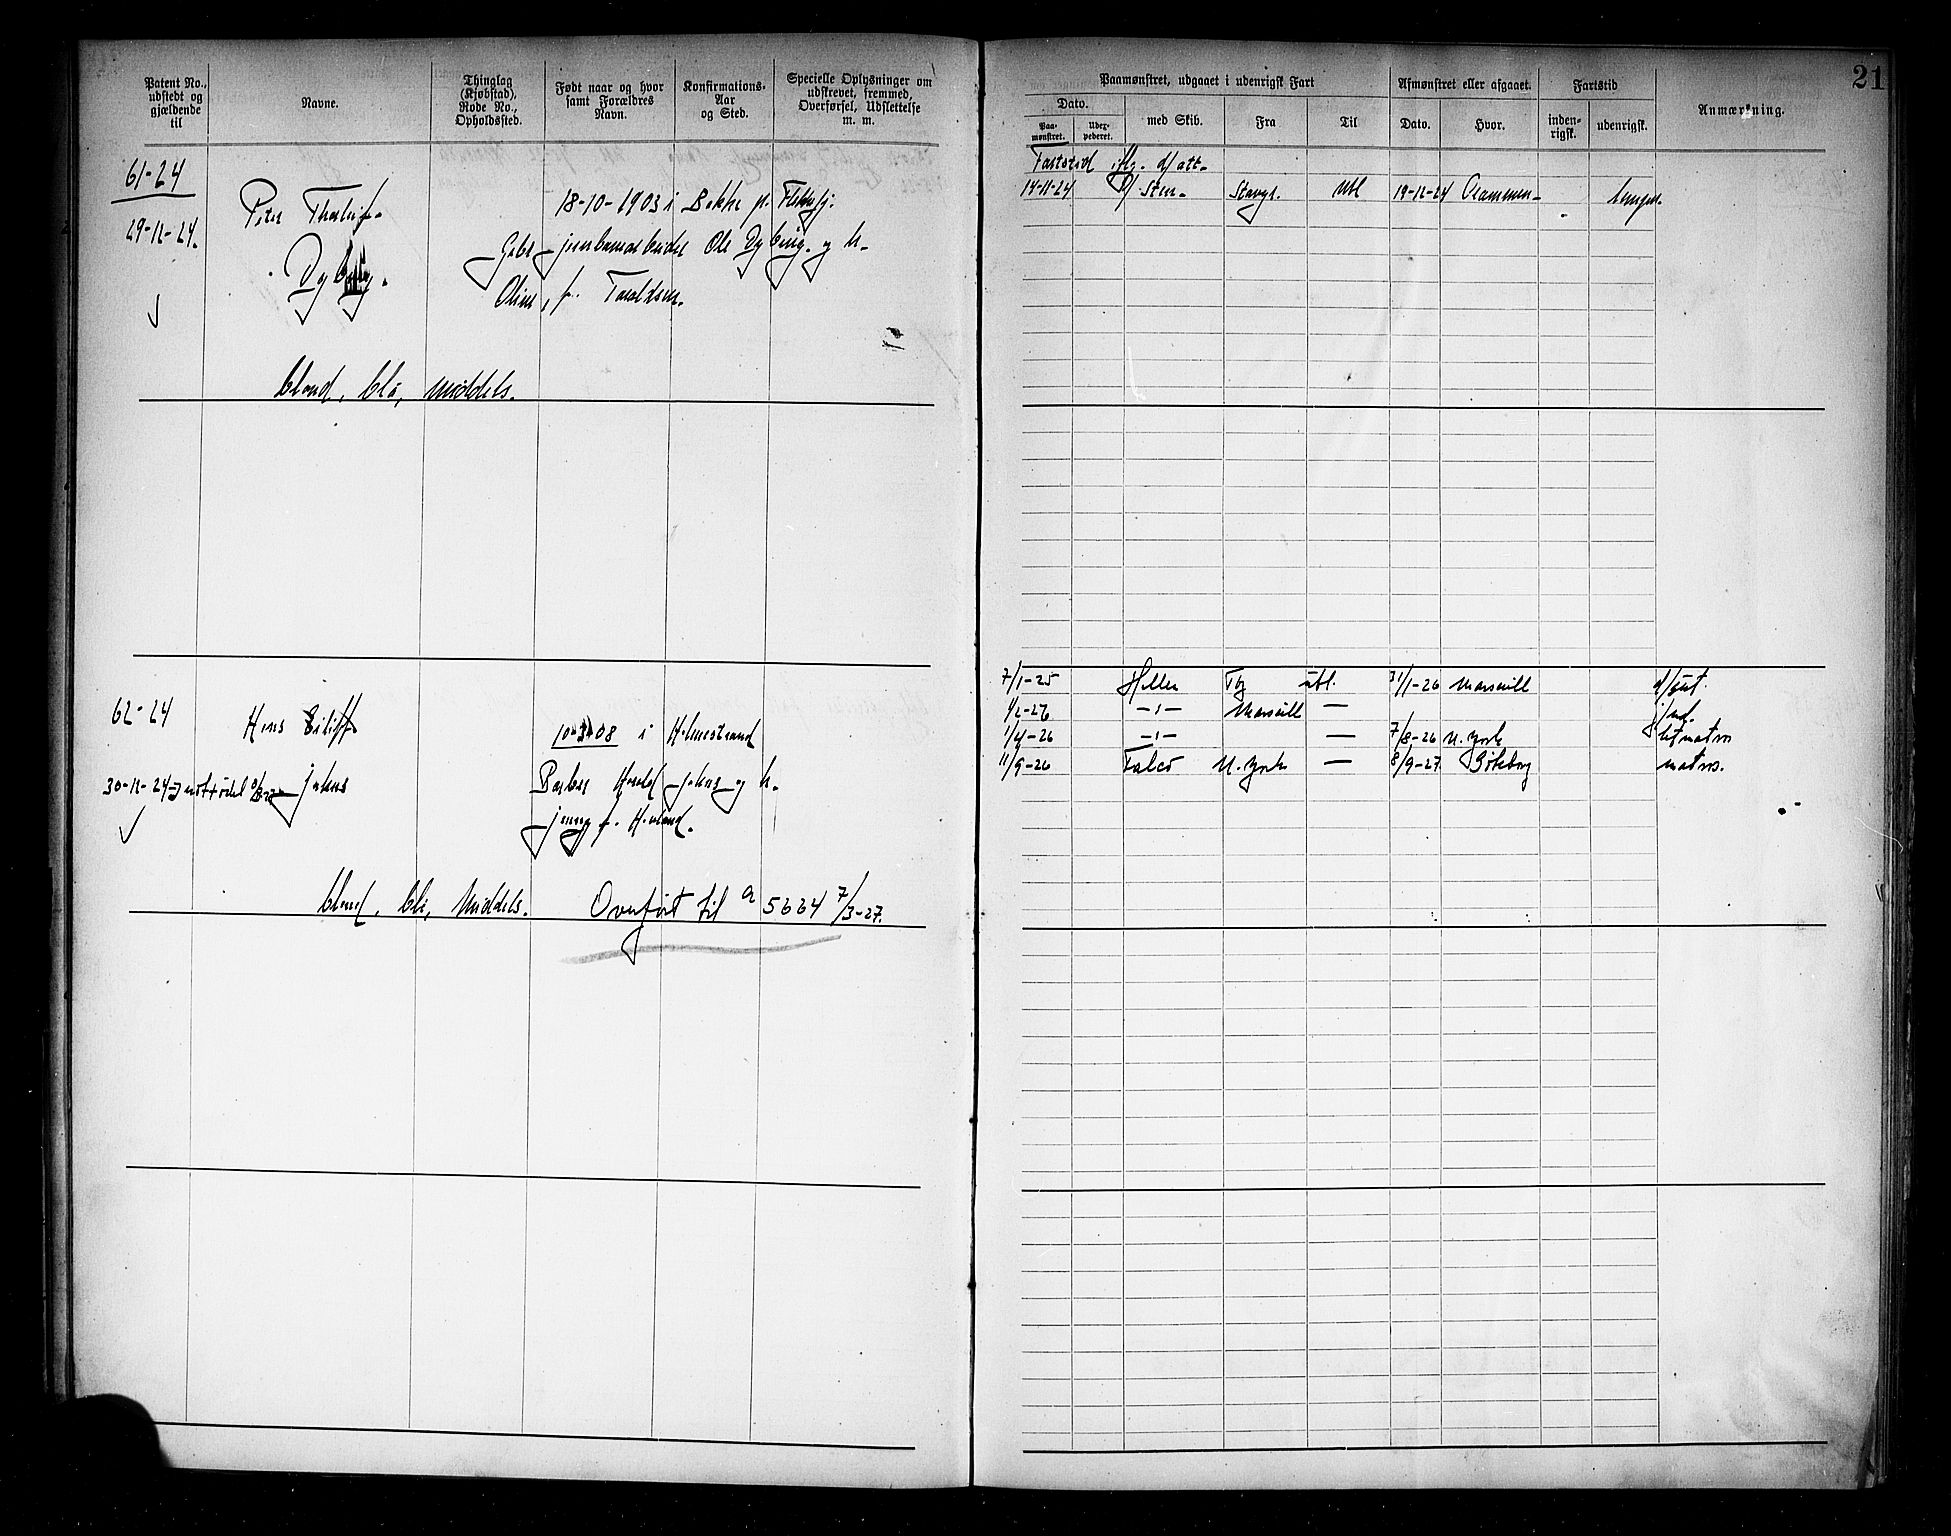 Patent No., udstedt og gjældende til
Navne.
Thinglag (Kjøbstad), Rode No., Opholdssted.
Født naar og hvor samt Forældres Navn.
Konfirmations-Aar og Sted.
Specielle Oplysninger om udskrevet, fremmed, Overførsel, Udslettelse m. m.
61-24
29-12-24.
Peter Thorleif
Dybing.
18-10-1903 i Bakke p. Flekkefj.
jernbanearbeider Ole Dybing og h.
Oline, f. Taraldsen.
blond, blå, middels.
62-24
Hans Eiliff
10-3-08 i Holmestrand
30-12-24
Johns
Barber Harald Johns og h.
Jenny f. Hovland.
blond, blå, middels.
Overført til a 5664 7/3-27.
21
Paamønstret, udgaaet i udenrigsk Fart
Afmønstret eller afgaaet.
Fartstid
Anmærkning.
Dato.
Paa-mønstret.
Udex-pederet.
med Skib.
Fra
Til
Dato.
Hvor.
inden-rigsk.
udenrigsk.
Fartstid iflg. d/ att.
14-11-24 D/ Sten Stavgr. utl 19-12-24 Drammen lemper.
7/1-25 Heller Tbg utl. 31/1-26 Marseill d/gut.
1/2-26 -"- Marseill — jmd.
1/4-26 -"- — 7/8-26 N. York letmatros
11/9-26 Falco N. York — 8/9-27 Göteborg matros.